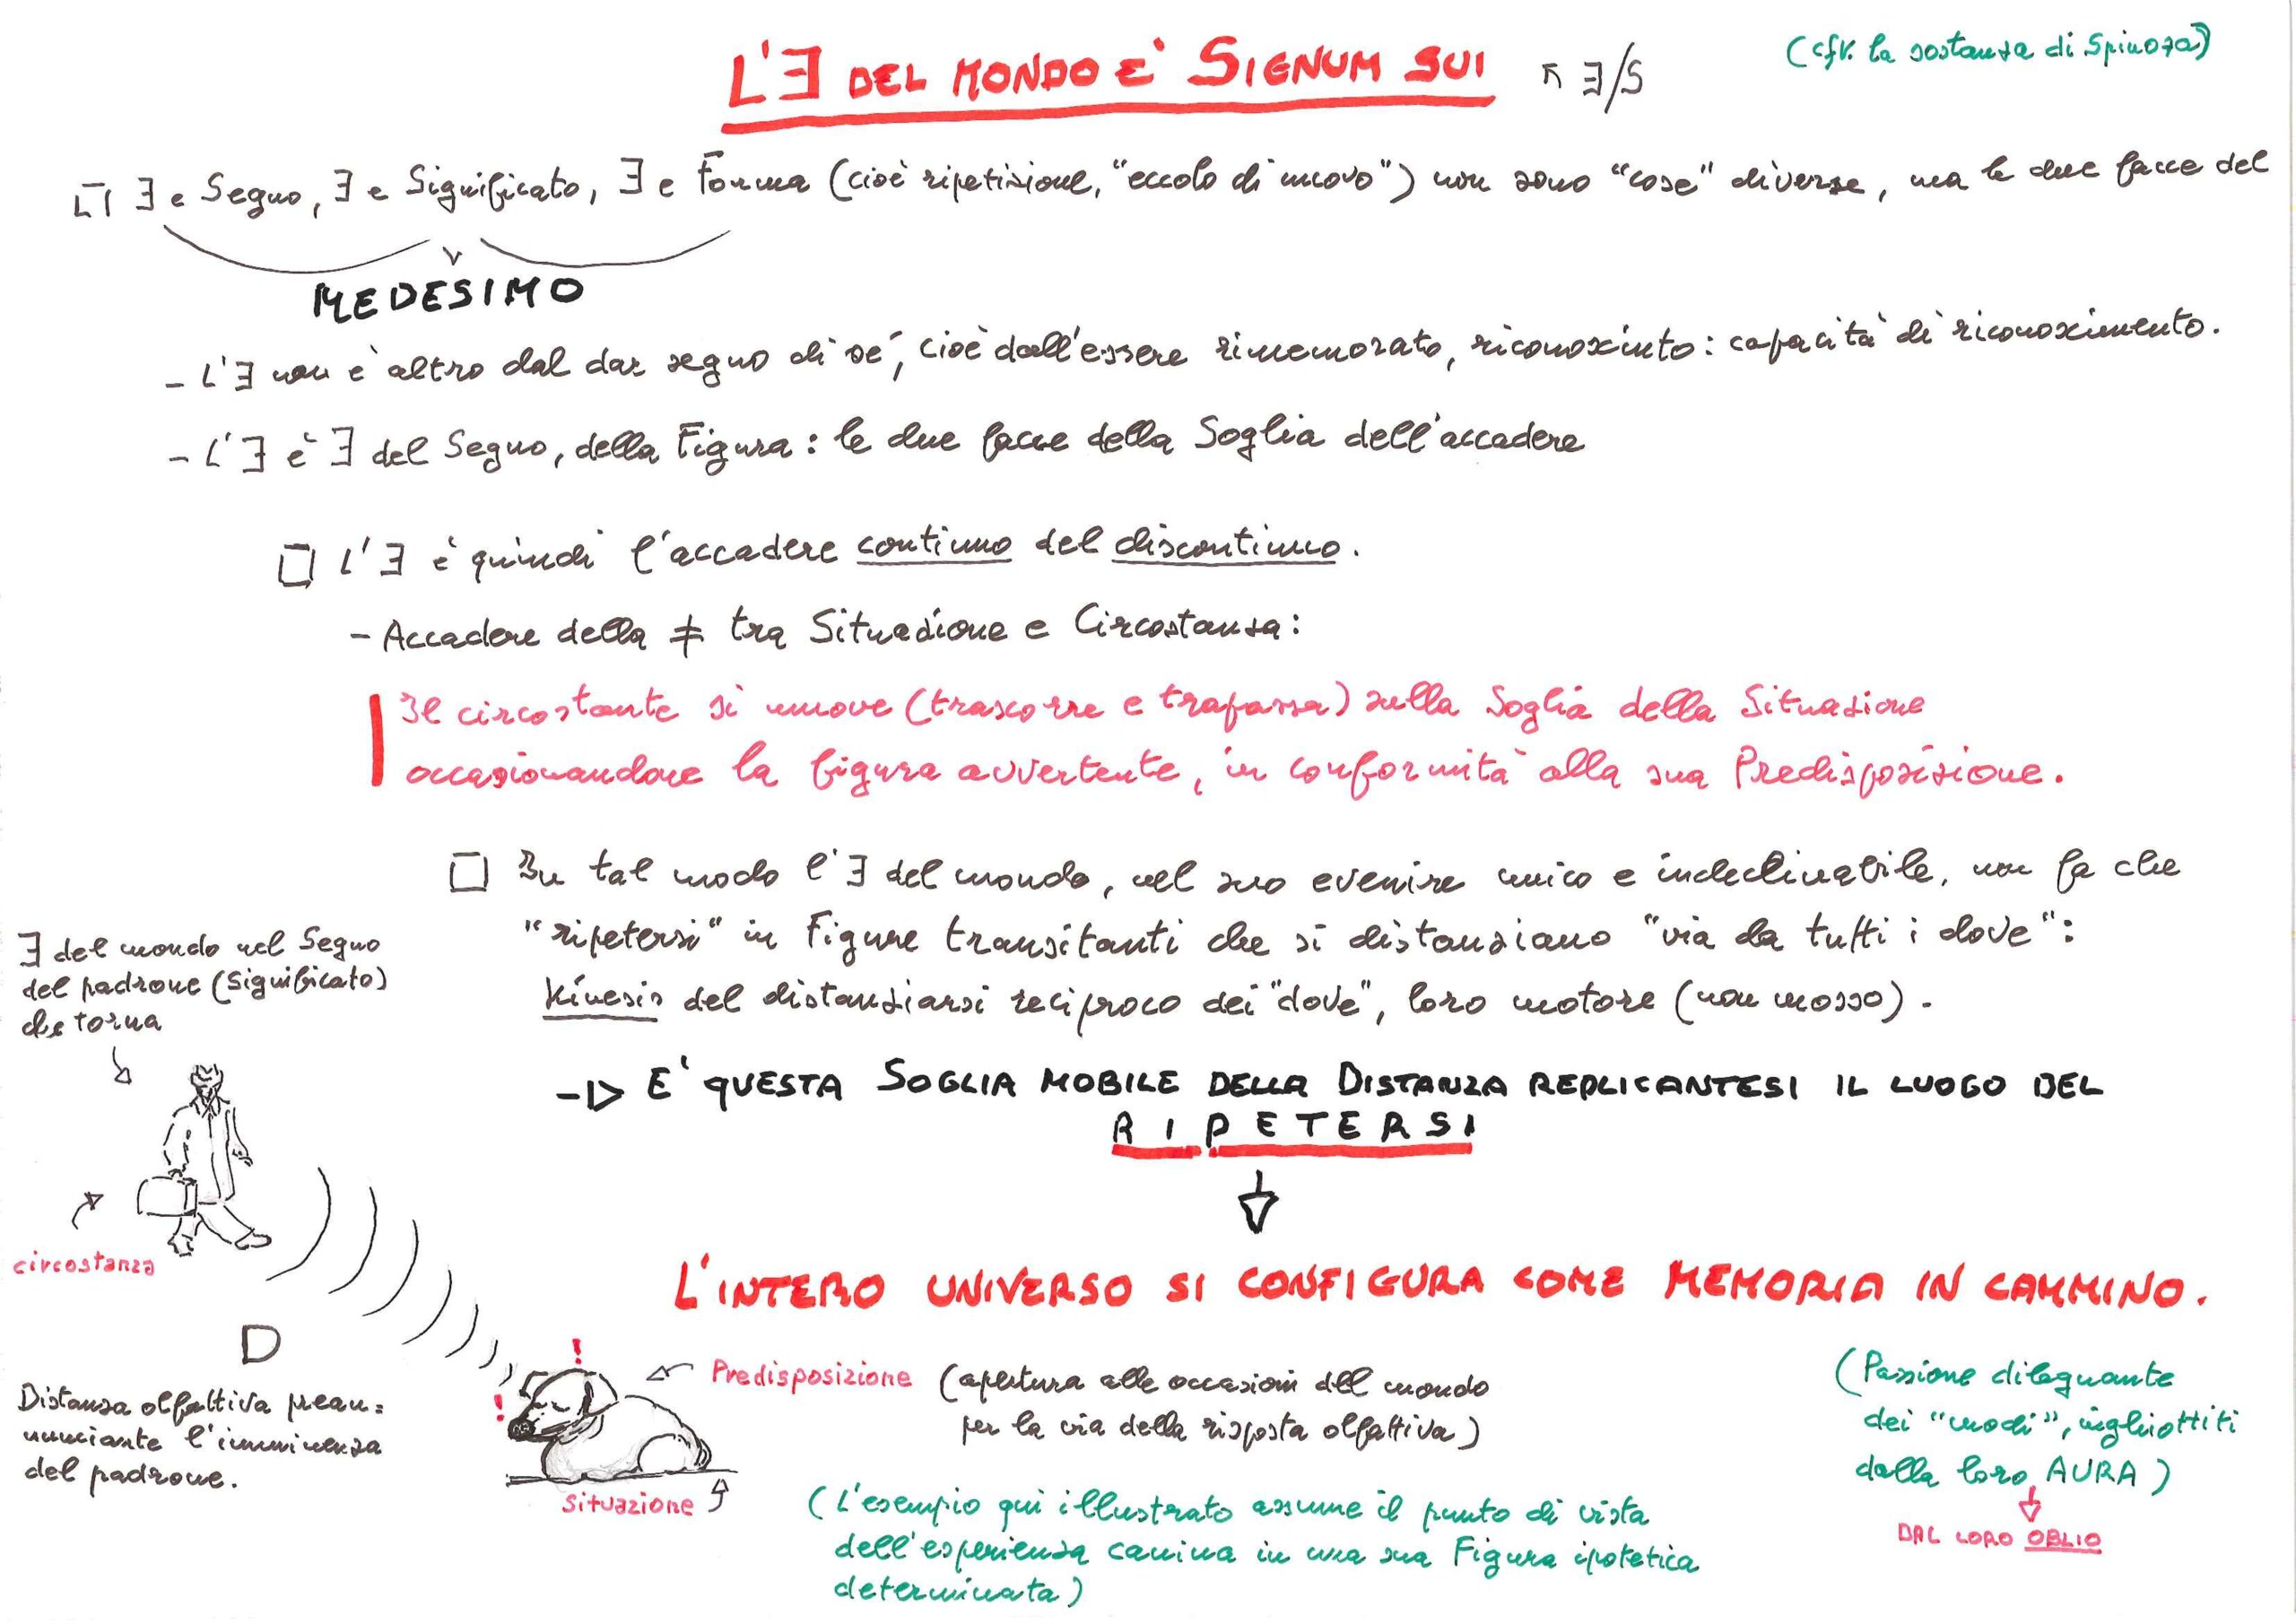 L'∃ DEL MONDO E' SIGNUM SUI
↖ ∃/S
(cfr. la sostanza di Spinoza)
∃ e Segno, ∃ e Significato, ∃ e Forma (cioè ripetizione, "eccolo di nuovo") non sono "cose" diverse, ma le due facce del
MEDESIMO
- L'∃ non è altro dal dar segno di sé, cioè dall'essere rimemorato, riconosciuto: capacità di riconoscimento.
- L'∃ è ∃ del Segno, della Figura: le due facce della Soglia dell'accadere
□ L'∃ è quindi l'accadere continuo del discontinuo.
- Accadere della ≠ tra Situazione e Circostanza:
Il circostante si muove (trascorre e trapassa) sulla Soglia della Situazione
occasionandone la figura avvertente, in conformità alla sua Predisposizione.
□ In tal modo l'∃ del mondo, nel suo evenire unico e indeclinabile, non fa che
"ripetersi" in Figure transitanti che si distanziano "via da tutti i dove":
Kínesis del distanziarsi reciproco dei "dove", loro motore (non mosso).
-▷ E' QUESTA SOGLIA MOBILE DELLA DISTANZA REPLICANTESI IL LUOGO DEL
RIPETERSI
∃ del mondo nel Segno
del padrone (Significato)
che torna
circostanza
L'INTERO UNIVERSO SI CONFIGURA COME MEMORIA IN CAMMINO.
D
Distanza olfattiva prean=
nunciante l'imminenza
del padrone.
!
!
Predisposizione (apertura alle occasioni del mondo
per la via della risposta olfattiva)
situazione
(L'esempio qui illustrato assume il punto di vista
dell'esperienza canina in una sua Figura ipotetica
determinata)
(Passione dileguante
dei "modi", inghiottiti
dalla loro AURA)
DAL LORO OBLIO